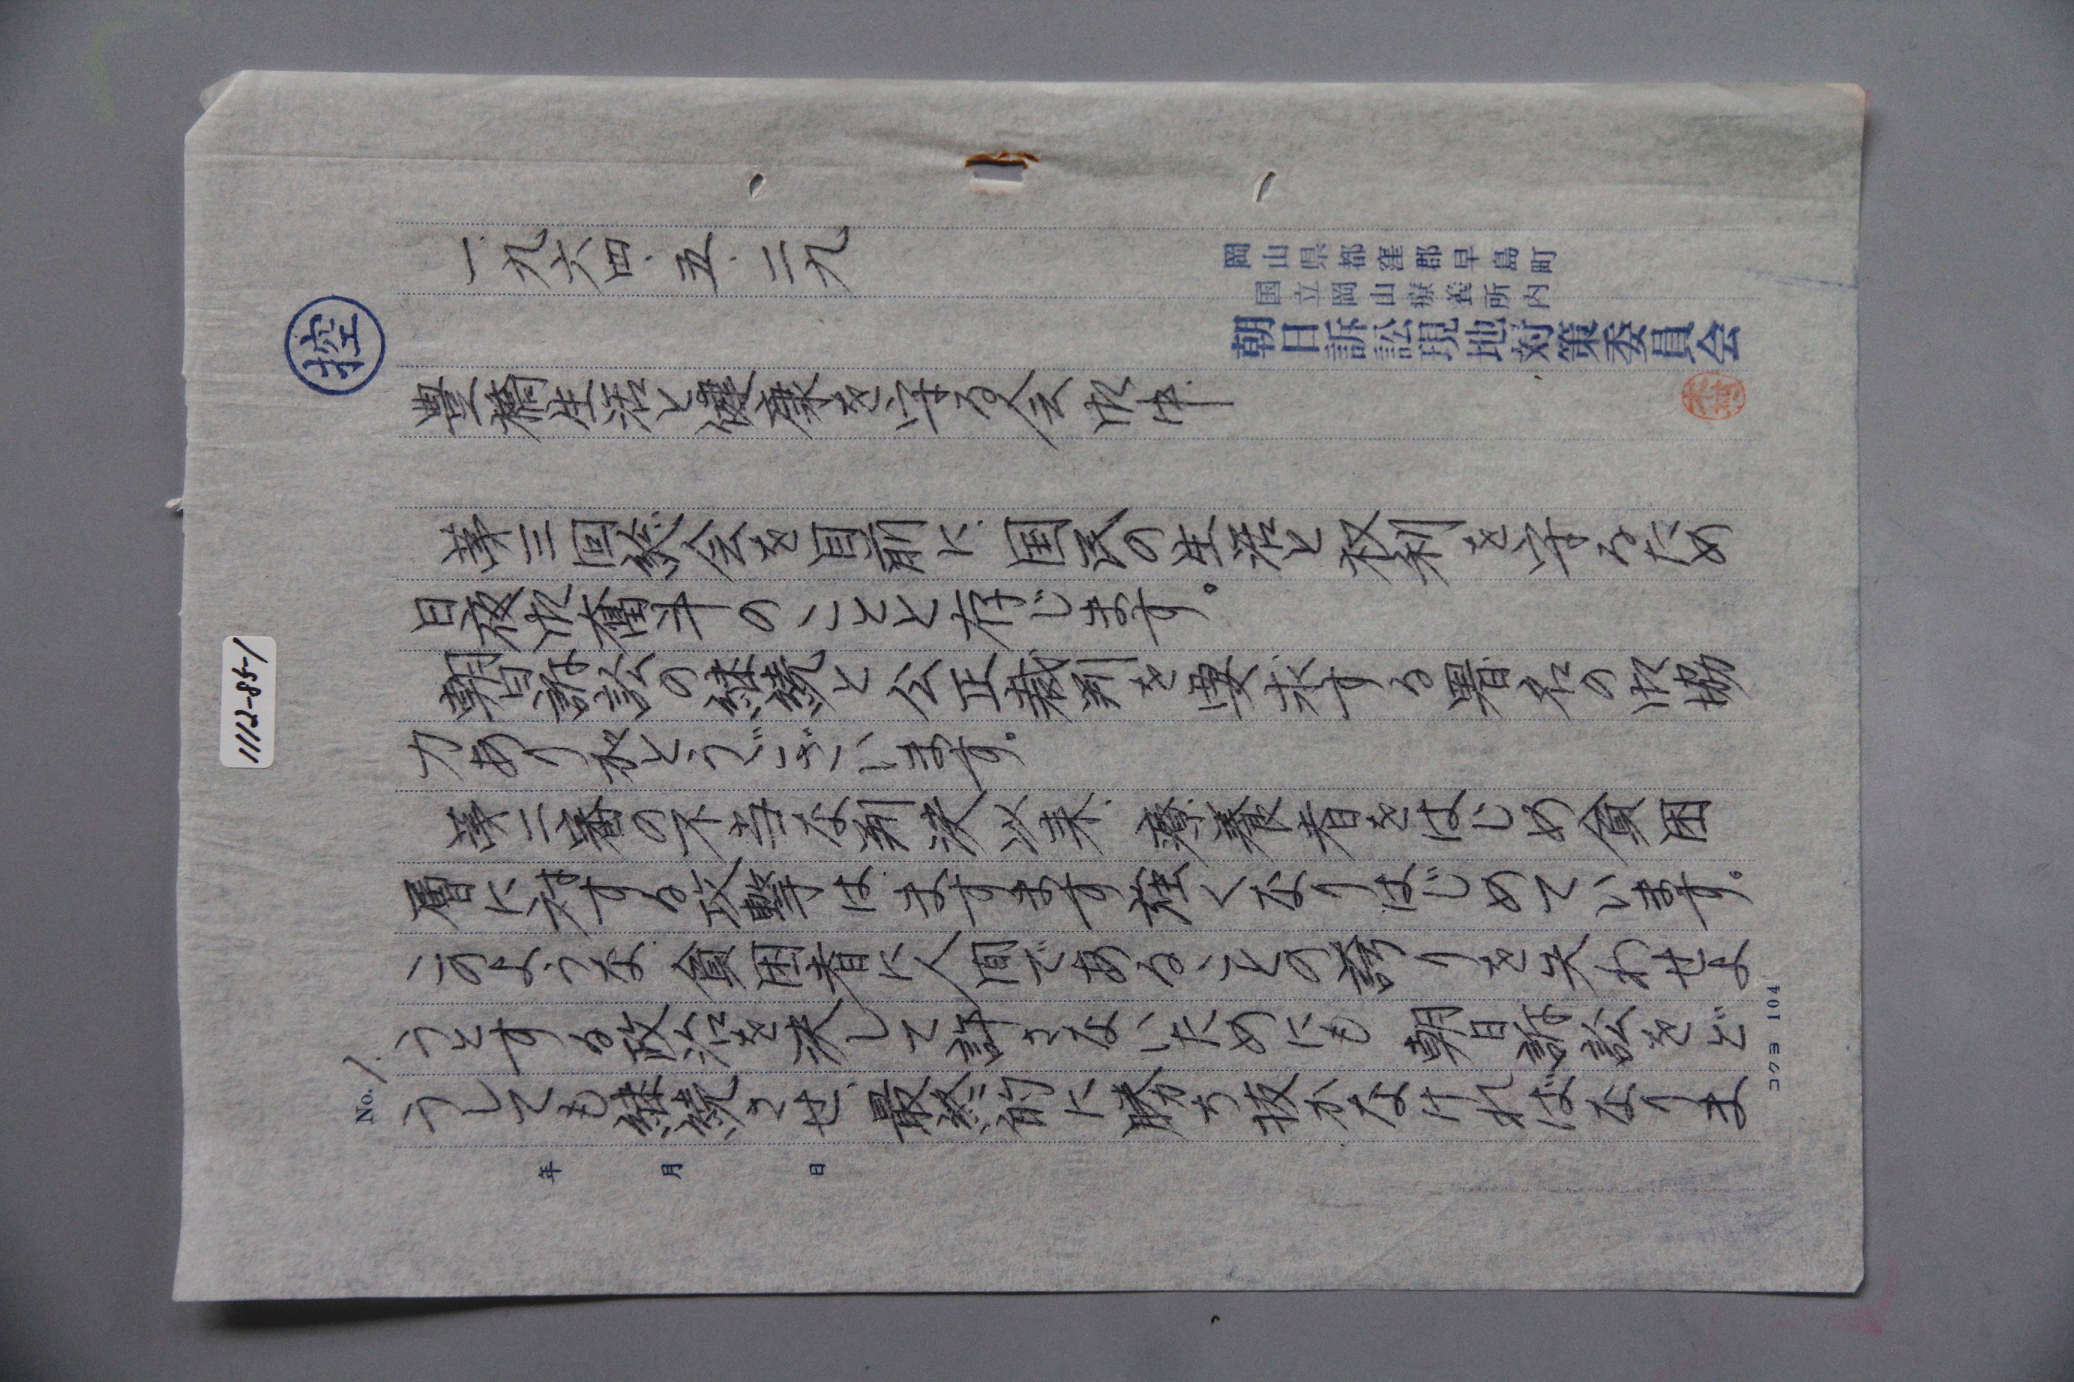 控
一九六四・五・二九
岡山県都窪郡早島町
国立岡山療養所内
朝日訴訟現地対策委員会
豊橋生活と健康を守る会御中
第三回総会を目前に、国民の生活と权利を守るため
日夜御奮斗のことと存じます。
朝日訴訟の継続と公正裁判を要求する署名の御協
力ありがとうございます。
第二審の不当な判決以来、療養者をはじめ貧困
層に対する攻撃は、ますます強くなりはじめています。
このような、貧困者に人間であることの誇りを失わせよ
うとする政治を決して許さないためにも 朝日訴訟をど
うしても継続させ、最終的に勝ち抜かなければなりま
No. 1
年 月 日
コクヨ 104
1112-85-1